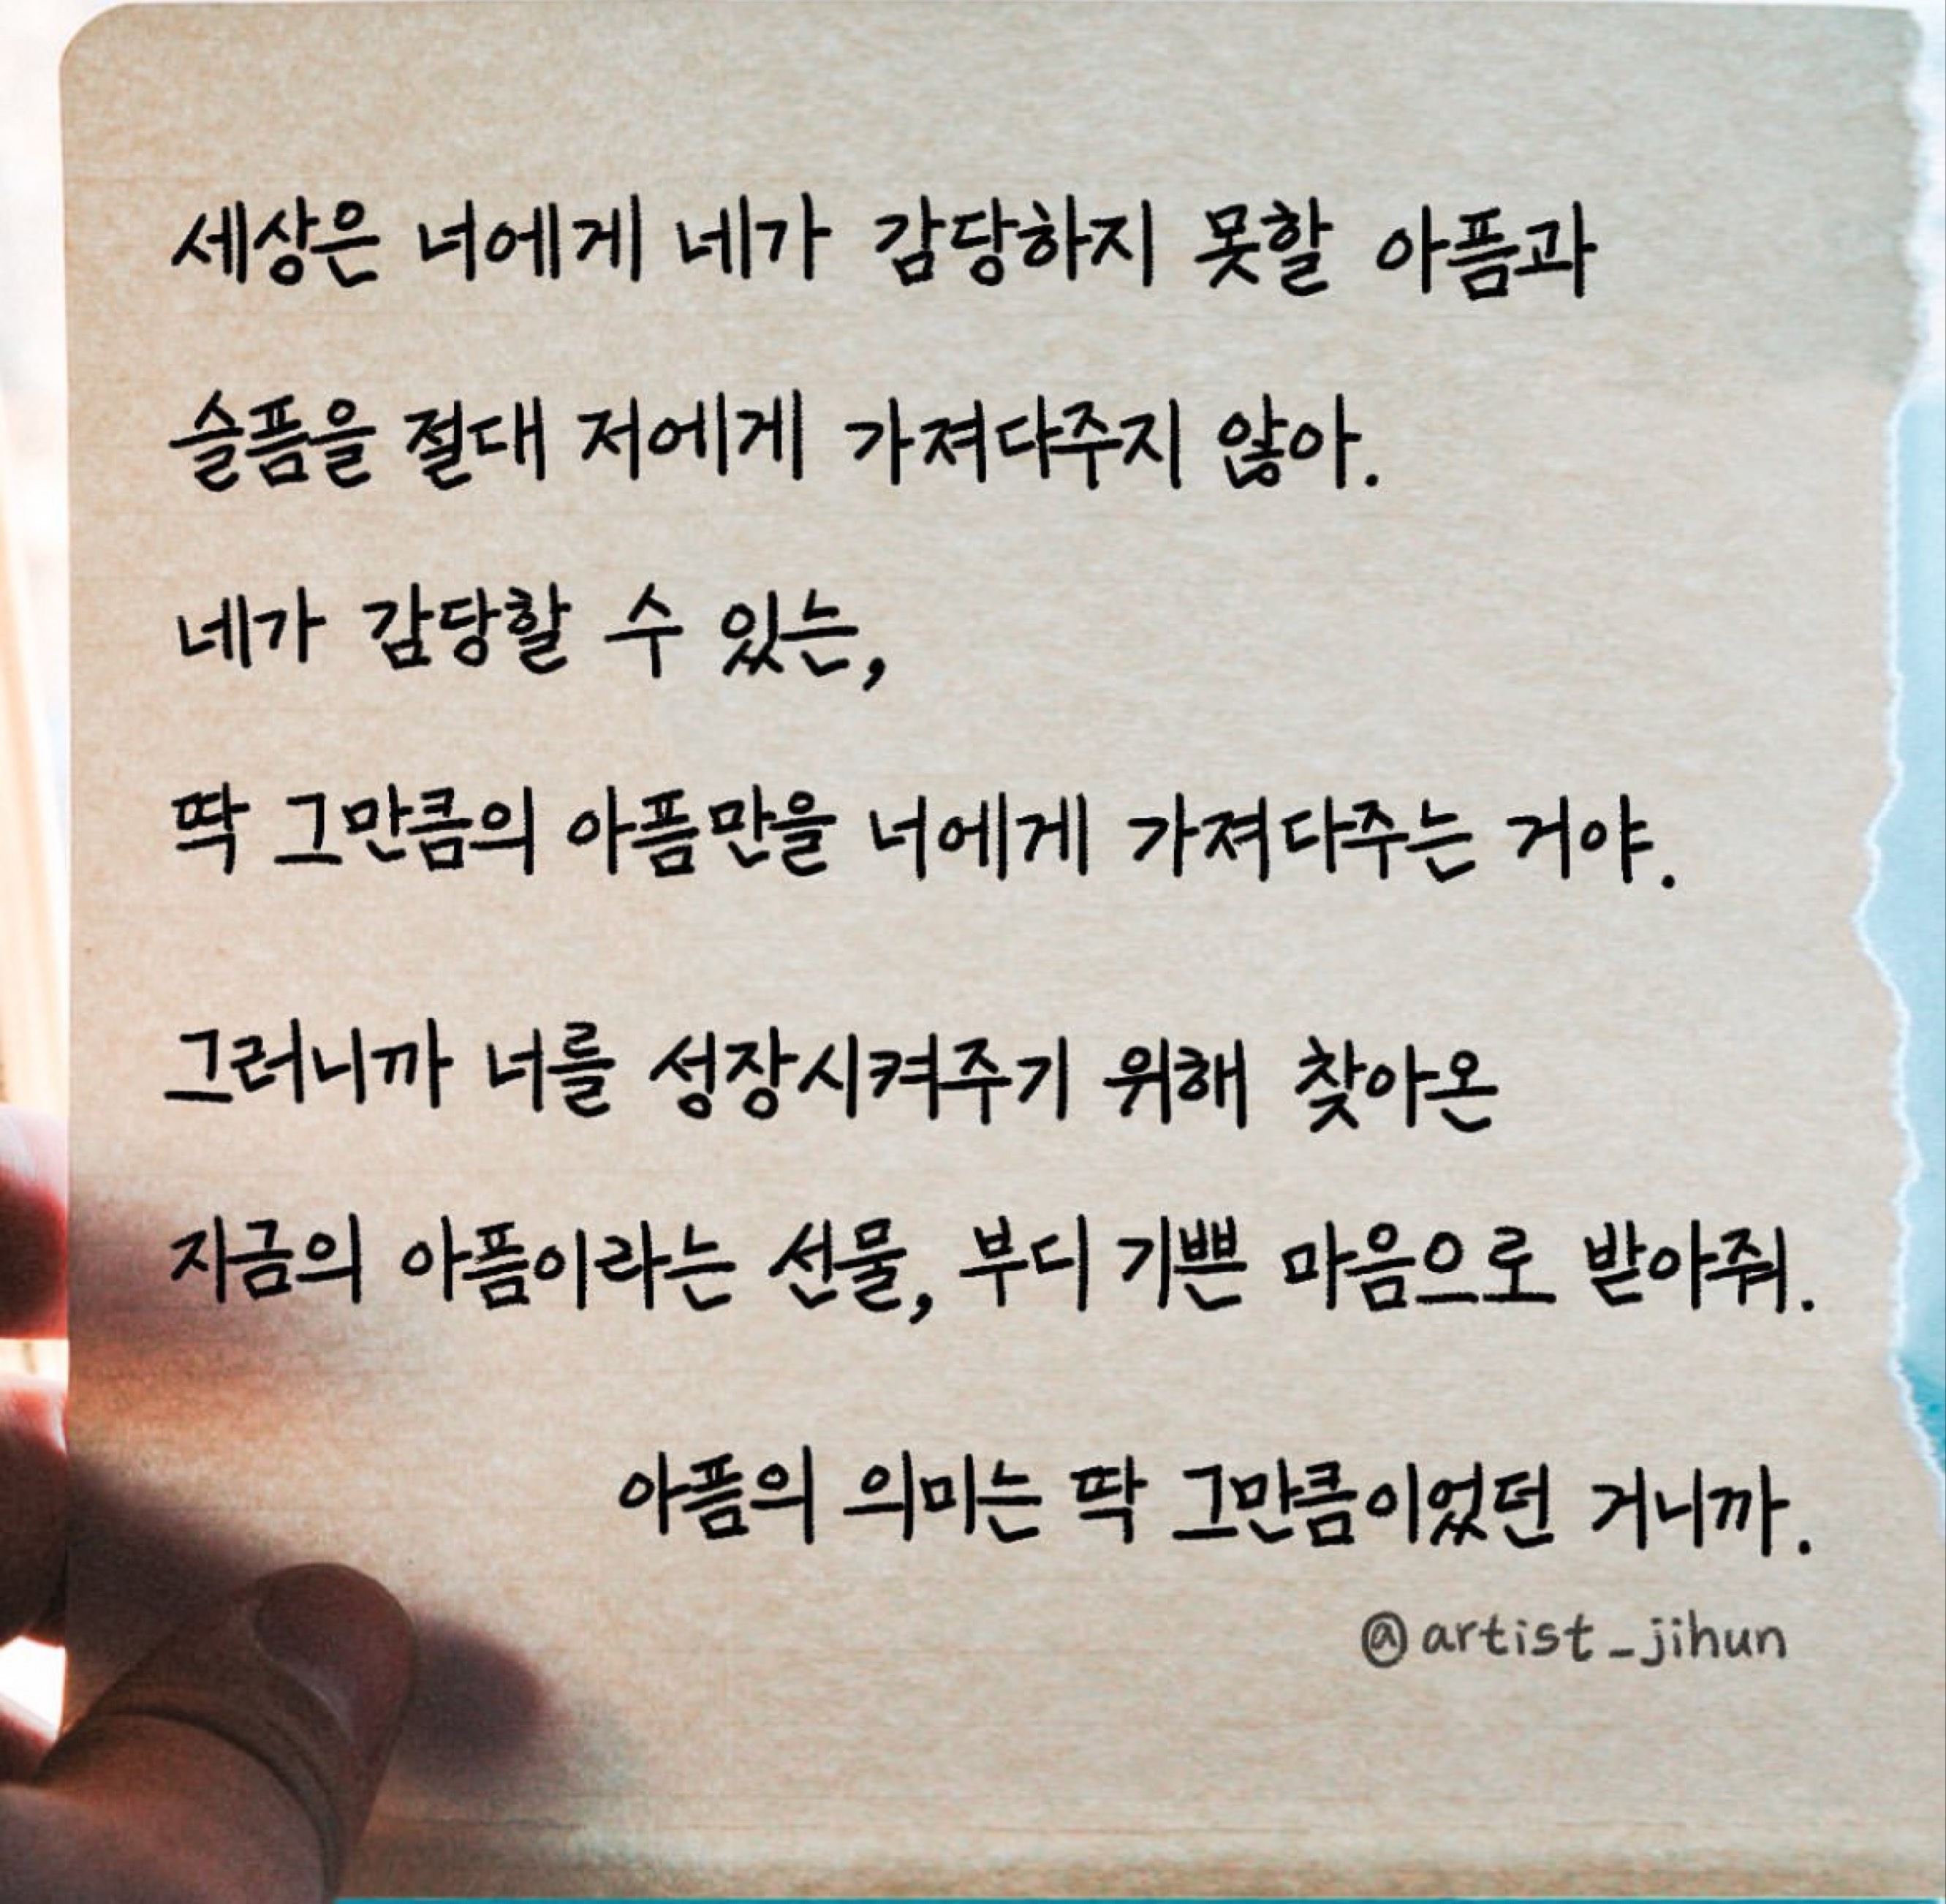 세상은 너에게 네가 감당하지 못할 아픔과
슬픔을 절대 저에게 가져다주지 않아.
네가 감당할 수 있는,
딱 그만큼의 아픔만을 너에게 가져다주는 거야.
그러니까 너를 성장시켜주기 위해 찾아온
지금의 아픔이라는 선물, 부디 기쁜 마음으로 받아줘.
아픔의 의미는 딱 그만큼이었던 거니까.
@artist_jihun